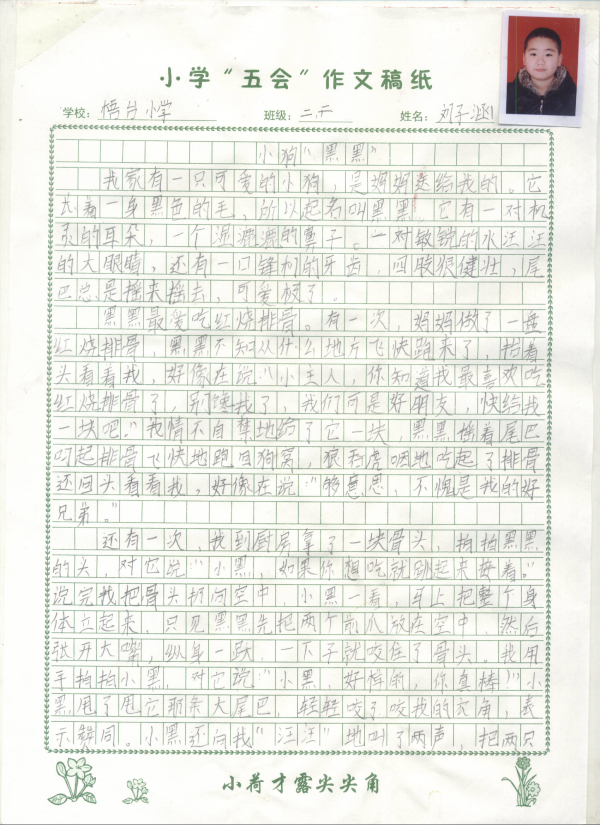 小学“五会”作文稿纸
学校：悟台小学 班级：二 姓名：刘子
小狗“黑黑”
我家有一只可爱的小狗，是妈妈送给我的。它
长着一身黑色的毛，所以起名叫黑黑。它有一对机
灵的耳朵，一个湿漉漉的鼻子。一对敏锐的水汪汪
的大眼睛，还有一口锋利的牙齿，四肢很健壮，尾
巴总是摇来摇去，可爱极了。
黑黑最爱吃红烧排骨。有一次，妈妈做了一盘
红烧排骨，黑黑不知从什么地方飞快跑来了，抬着
头看看我，好像在说：“小主人，你知道我最喜欢吃
红烧排骨了，别馋我了，我们可是好朋友，快给我
一块吧。”我情不自禁地给了它一块，黑黑摇着尾巴
叼起排骨飞快地跑回狗窝，狼吞虎咽地吃起了排骨
还回头看看我，好像在说：“够意思，不愧是我的好
兄弟。”
还有一次，我到厨房拿了一块骨头，拍拍黑黑
的头，对它说：“小黑，如果你想吃就跳起来接着。”
说完我把骨头扔向空中，小黑一看，马上把整个身
体立起来，只见黑黑先把两个前爪放在空中，然后
张开大嘴，纵身一跃，一下子就咬住了骨头。我用
手拍拍小黑，对它说：“小黑，好样的，你真棒！”小
黑甩了甩它那条大尾巴，轻轻咬了咬我的衣角，表
示赞同。小黑还向我“汪汪”地叫了两声，把两只
小荷才露尖尖角